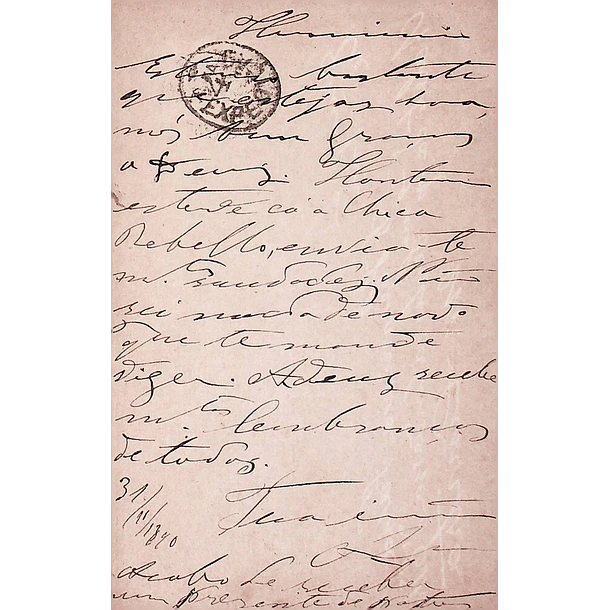 Herminia
Estimo bastante
que estejas boa,
nós bem graças
a Deus. Hontem
esteve cá a Chica
Rebello, envia-te
m.tas saudades. Não
sei nada de novo
que te mande
dizer. Adeus recebe
m.tas lembranças
de todos.
Tua
31/ /1890
Acabo de receber
um presente de